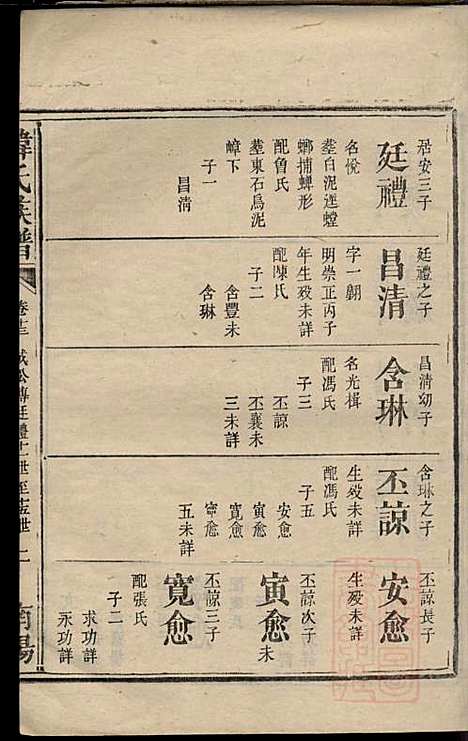 居安三子
廷禮
名悅
塟白泥逕螳
螂捕蟬形
配魯氏
塟東石烏泥
嶂下
子一
昌清
廷禮之子
昌清
字一鶴
明崇正丙子
年生殁未詳
配陳氏
子二
含豐未
含琳
昌清幼子
含琳
名光楫
配馮氏
子三
丕諒
丕襄未
三未詳
含琳之子
丕諒
生殁未詳
配馮氏
子五
安愈
寅愈
寛愈
寕愈
五未詳
丕諒長子
安愈
生殁未詳
丕諒次子
寅愈未
丕諒三子
寛愈
配張氏
子二
求功詳
永功詳
韓氏族譜
卷十三
公傳廷禮十一世至十五世
二
南陽